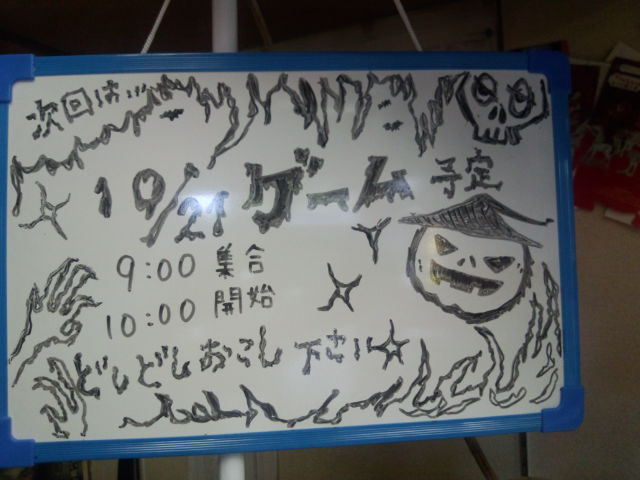 次回は…
10/21 ゲーム 予定
9:00 集合
10:00 開始
どしどしおこし下さい